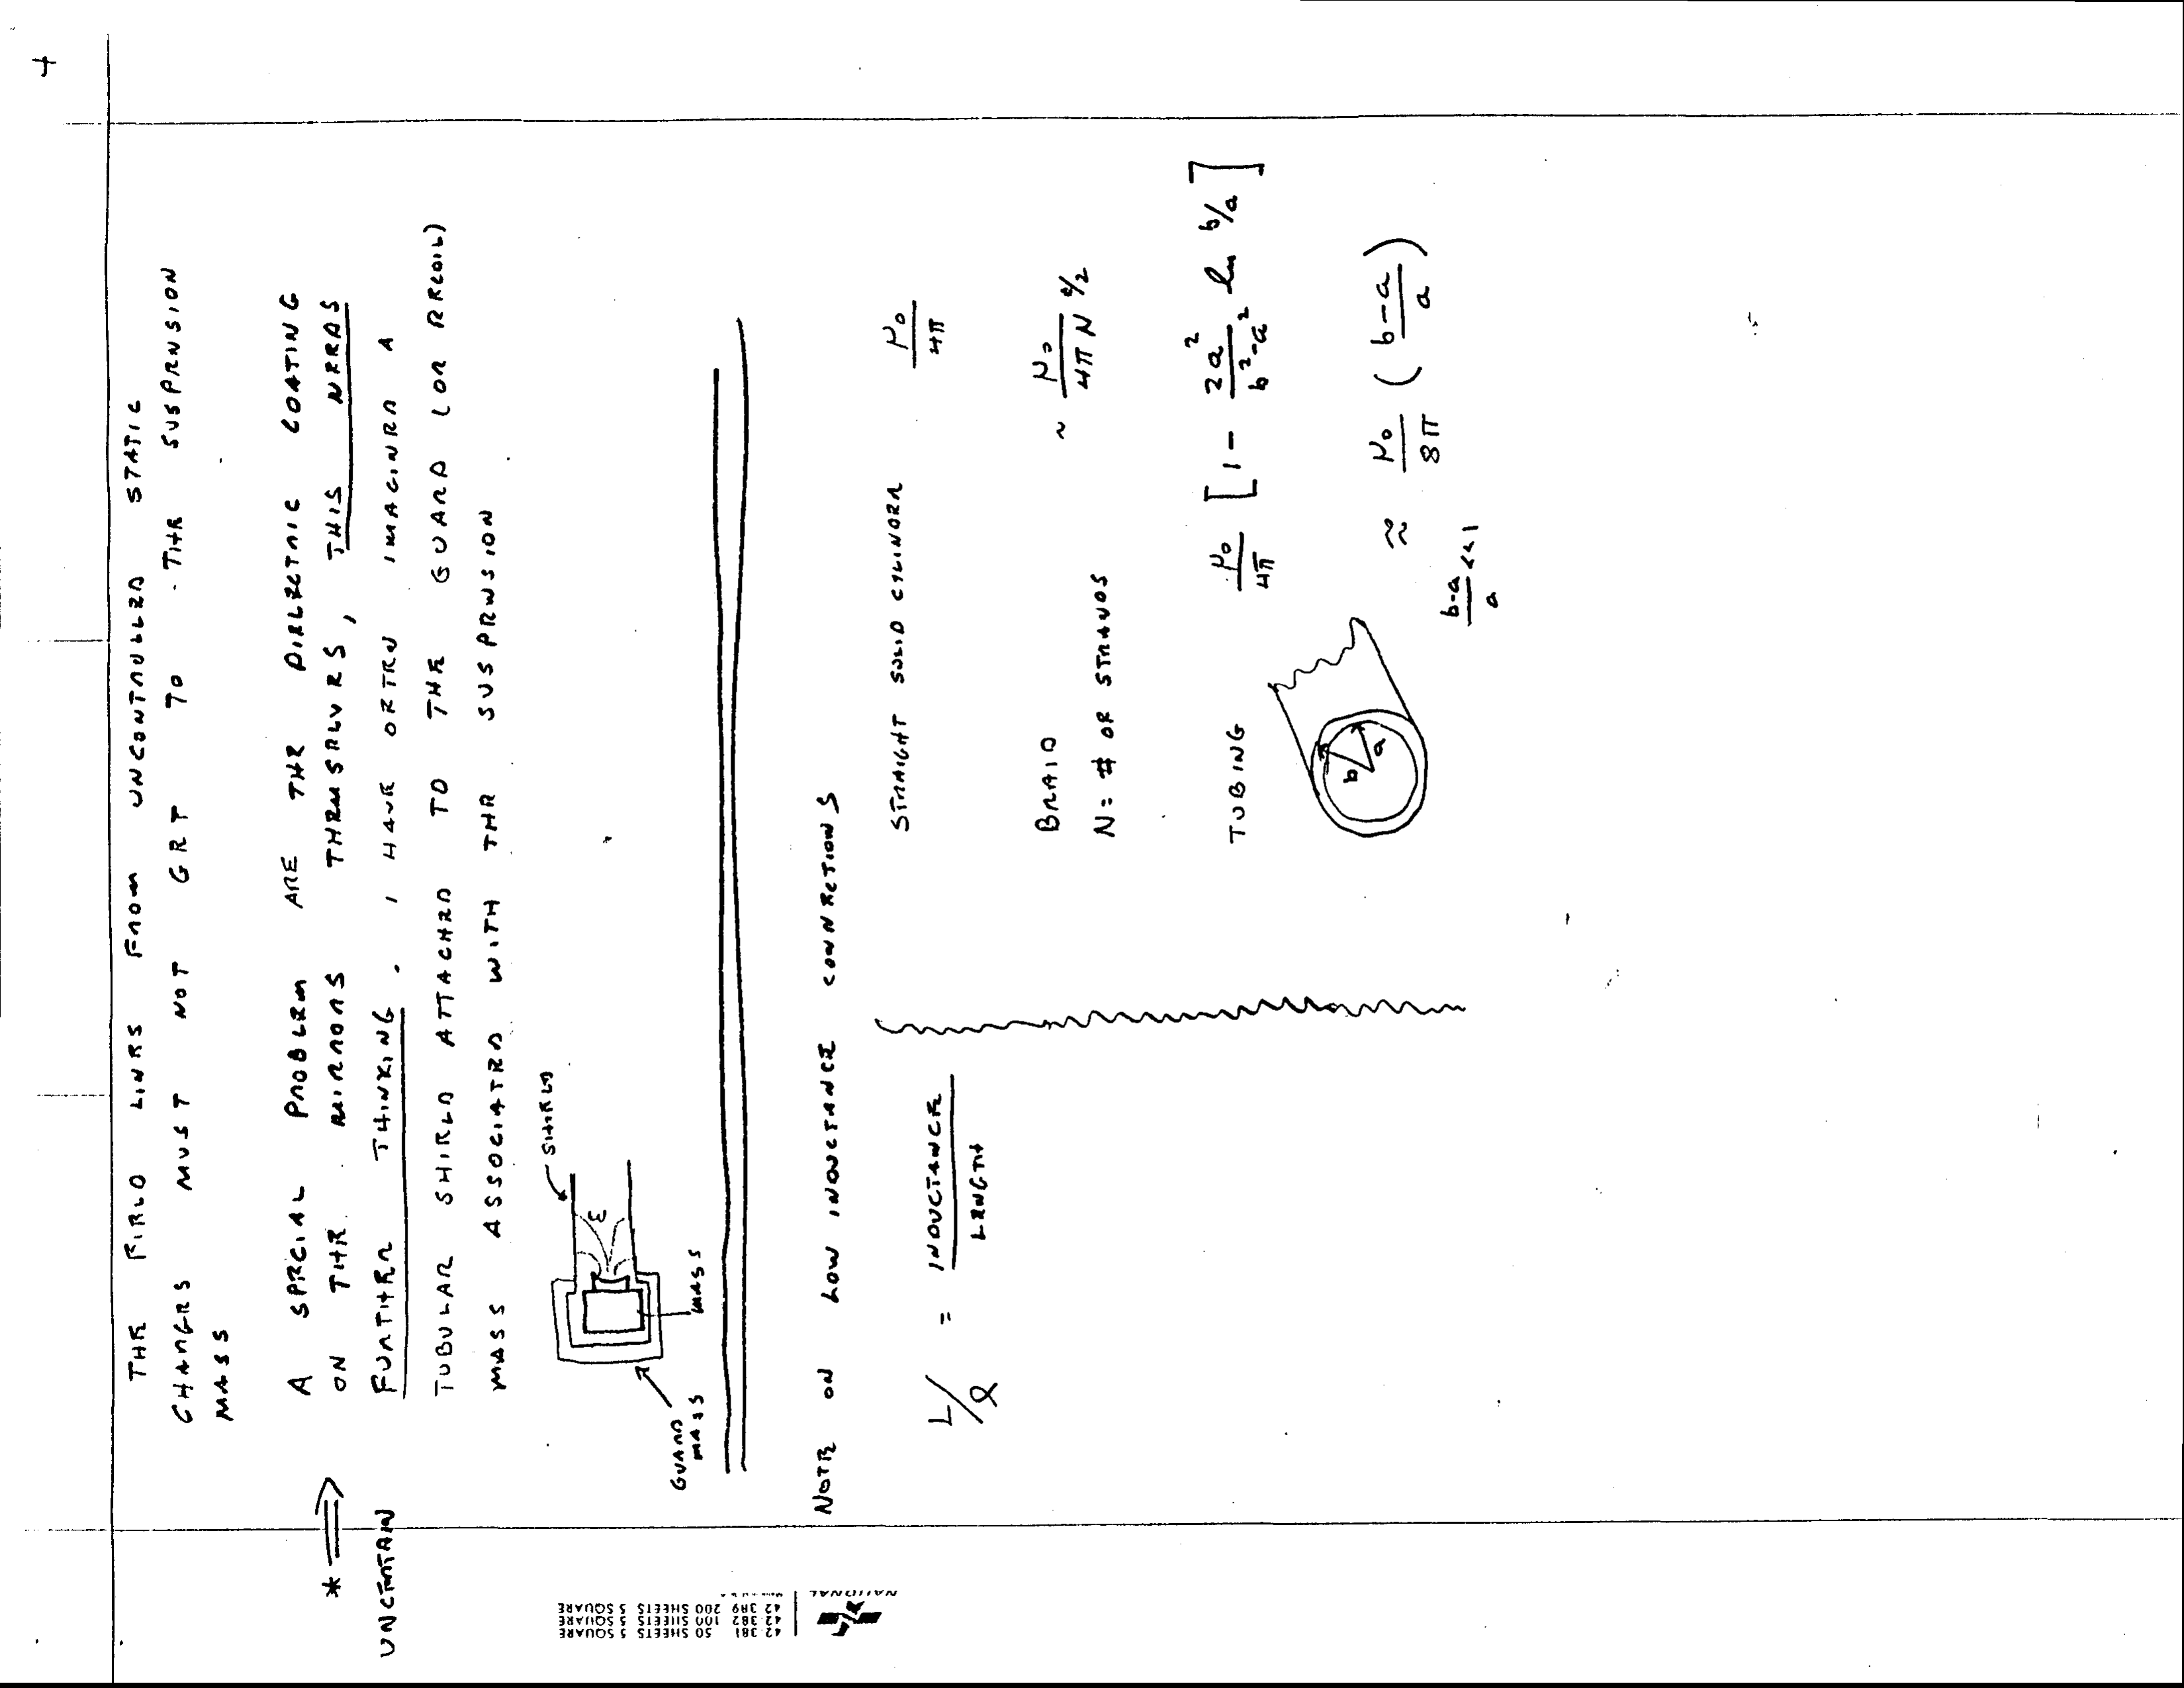 4
THE FIELD LINES FROM UNCONTROLLED STATIC
CHARGES MUST NOT GET TO THE SUSPENSION
MASS
A SPECIAL PROBLEM ARE THE DIELECTRIC COATING
* ⇒ ON THE MIRRORS THEMSELVES, THIS NEEDS
UNCERTAIN FURTHER THINKING. I HAVE OFTEN IMAGINED A
TUBULAR SHIELD ATTACHED TO THE GUARD (OR RECOIL)
MASS ASSOCIATED WITH THE SUSPENSION
SHIELD
E
MASS
GUARD
MASS
NOTE ON LOW INDUCTANCE CONNECTIONS
L/ℓ = INDUCTANCE / LENGTH
STRAIGHT SOLID CYLINDER μ₀/4π
BRAID ~ μ₀/4πN
N = # OF STRANDS
TUBING μ₀/4π [1 - 2a²/(b²-a²) ln b/a]
b a
≈ μ₀/8π ((b-a)/a)
(b-a)/a <<1
42-381 50 SHEETS 5 SQUARE
42-382 100 SHEETS 5 SQUARE
42-389 200 SHEETS 5 SQUARE
NATIONAL